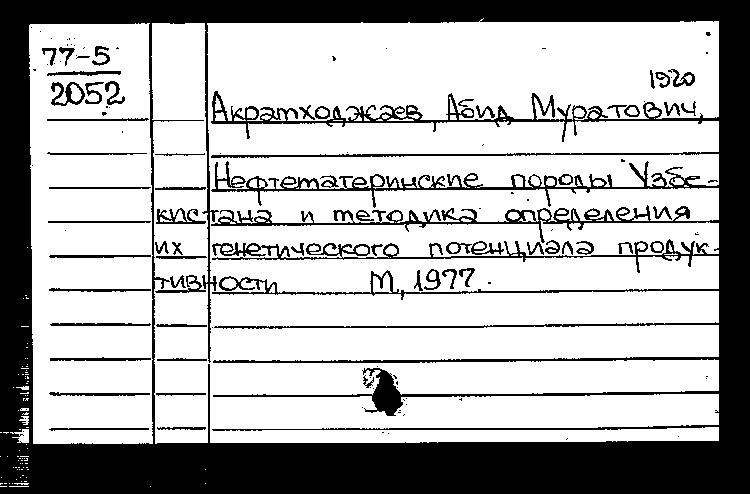 77-5
2052
1920
Акратходжаев, Абид Муратович,
Нефтематеринские породы Узбе-
кистана и методика определения
их генетического потенциала продук-
тивности. М., 1977.